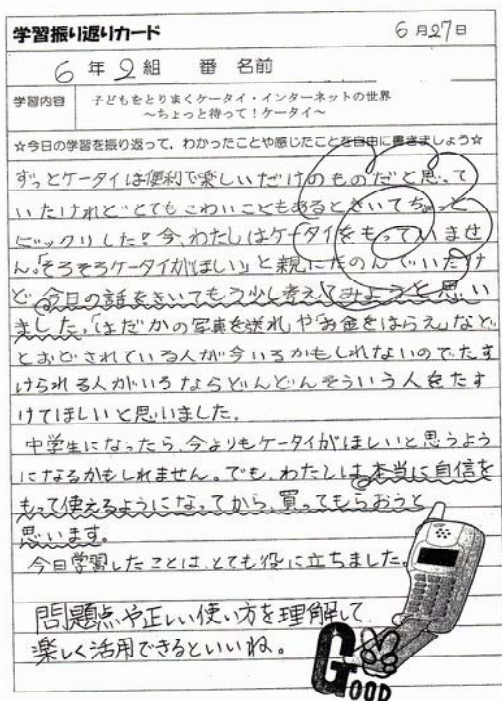 学習振り返りカード
6月27日
6年2組 番 名前
学習内容
子どもをとりまくケータイ・インターネットの世界
～ちょっと待って！ケータイ～
☆今日の学習を振り返って，わかったことや感じたことを自由に書きましょう☆
ずっとケータイは便利で楽しいだけのものだと思って
いたけれど、とてもこわいこともあるときいてちょっと
ビックリした！今、わたしはケータイをもっていませ
ん。「そろそろケータイがほしい」と親にたのんでいたけ
ど、今日の話をきいてもう少し考えてみようと思い
ました。「はだかの写真を送れ」や「お金をはらえ」など
とおどされている人が今いるかもしれないのでたす
けられる人がいるならどんどんそういう人をたす
けてほしいと思いました。
中学生になったら、今よりもケータイがほしいと思うよう
になるかもしれません。でも、わたしは、本当に自信を
もって使えるようになってから、買ってもらおうと
思います。
今日学習したことは、とても役に立ちました。
問題点や正しい使い方を理解して
楽しく活用できるといいね。
GOOD